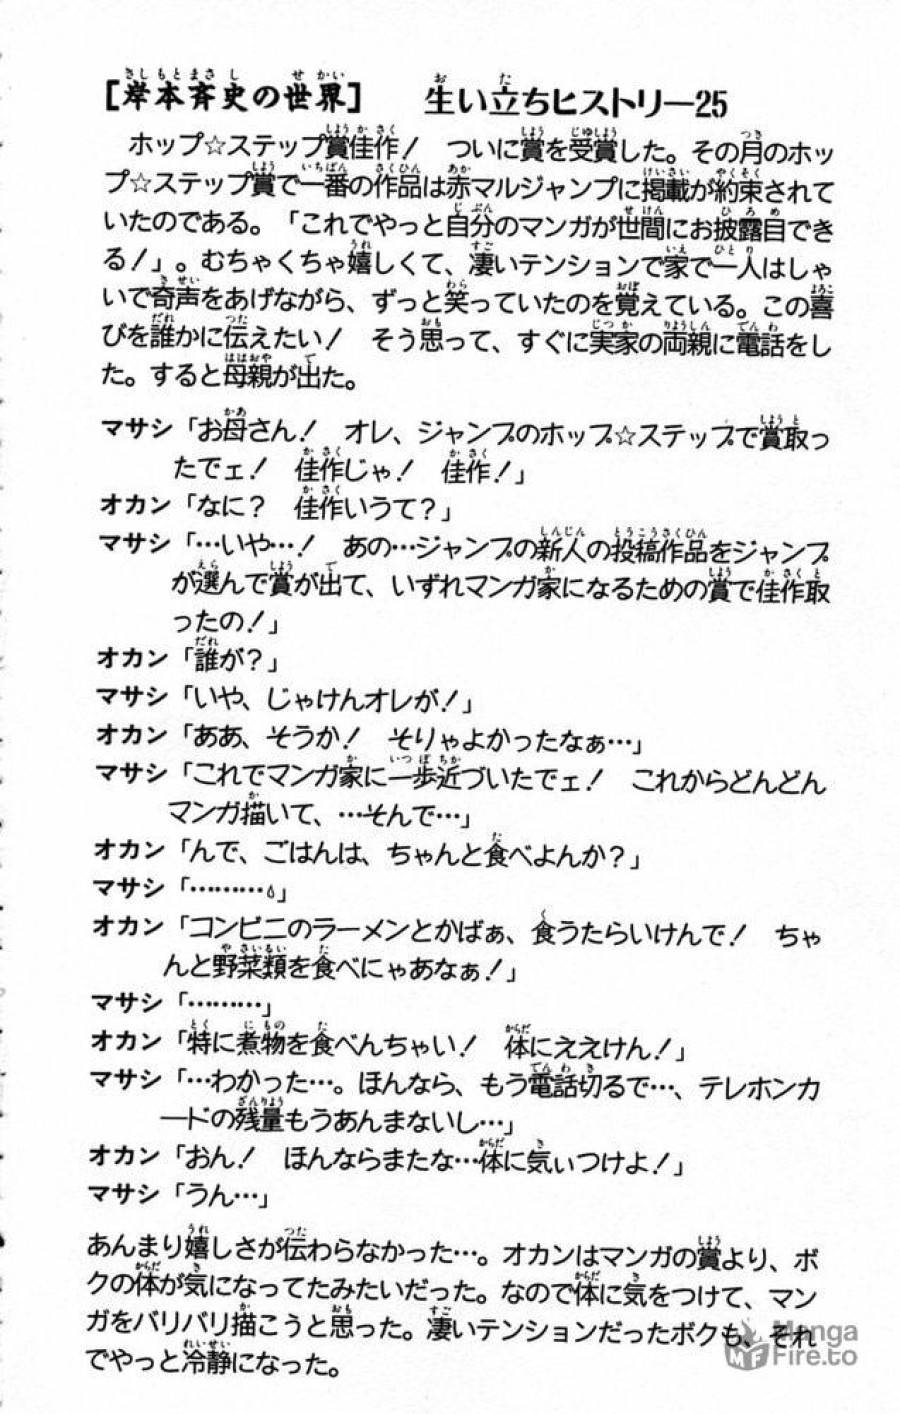 [岸本斉史の世界] 生い立ちヒストリー25
ホップ☆ステップ賞佳作! ついに賞を受賞した。その月のホッ
プ☆ステップ賞で一番の作品は赤マルジャンプに掲載が約束されて
いたのである。「これでやっと自分のマンガが世間にお披露目でき
る!」。むちゃくちゃ嬉しくて、凄いテンションで家で一人はしゃ
いで奇声をあげながら、ずっと笑っていたのを覚えている。この喜
びを誰かに伝えたい! そう思って、すぐに実家の両親に電話をし
た。すると母親が出た。
マサシ「お母さん! オレ、ジャンプのホップ☆ステップで賞取っ
たでェ! 佳作じゃ! 佳作!」
オカン「なに? 佳作いうて?」
マサシ「…いや…! あの…ジャンプの新人の投稿作品をジャンプ
が選んで賞が出て、いずれマンガ家になるための賞で佳作取
ったの!」
オカン「誰が?」
マサシ「いや、じゃけんオレが!」
オカン「ああ、そうか! そりゃよかったなぁ…」
マサシ「これでマンガ家に一歩近づいたでェ! これからどんどん
マンガ描いて、…そんで…」
オカン「んで、ごはんは、ちゃんと食べよんか?」
マサシ「………💧」
オカン「コンビニのラーメンとかばぁ、食うたらいけんで! ちゃ
んと野菜類を食べにゃあなぁ!」
マサシ「………」
オカン「特に煮物を食べんちゃい! 体にええけん!」
マサシ「…わかった…。ほんなら、もう電話切るで…、テレホンカ
ードの残量もうあんまないし…」
オカン「おん! ほんならまたな…体に気ぃつけよ!」
マサシ「うん…」
あんまり嬉しさが伝わらなかった…。オカンはマンガの賞より、ボ
クの体が気になってたみたいだった。なので体に気をつけて、マン
ガをバリバリ描こうと思った。凄いテンションだったボクも、それ
でやっと冷静になった。
MF Manga
Fire.to